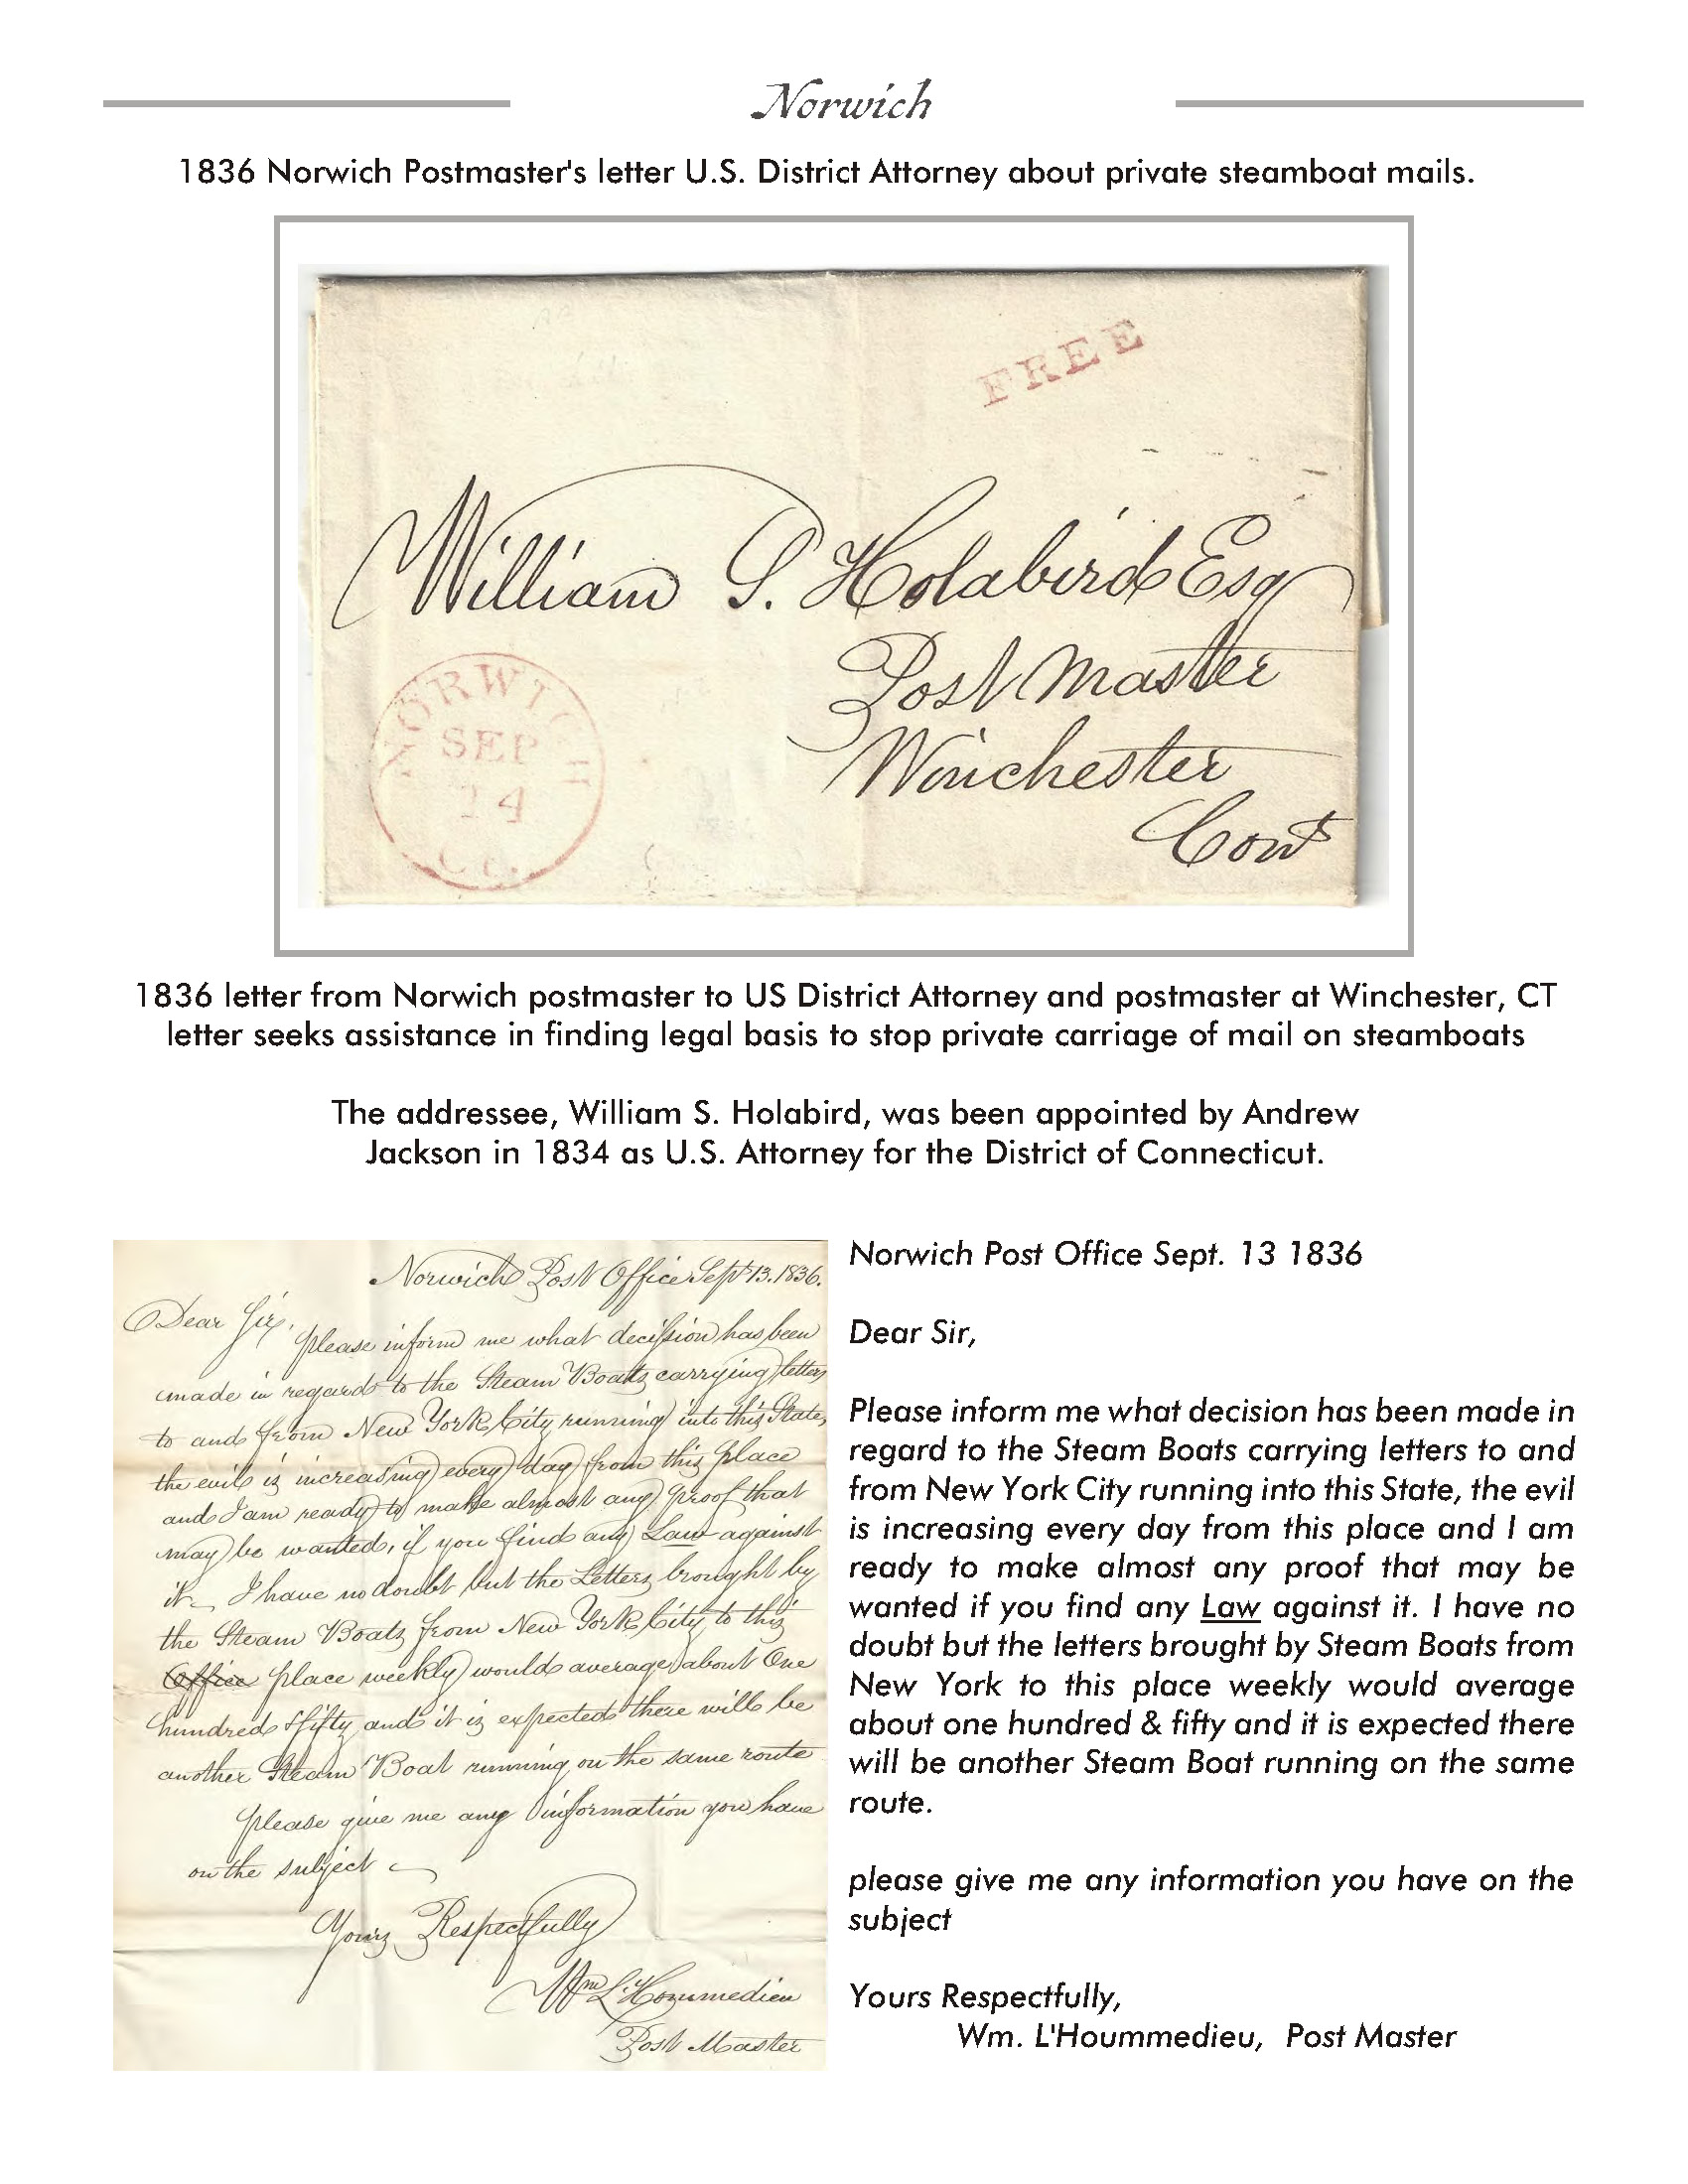 Norwich
1836 Norwich Postmaster's letter U.S. District Attorney about private steamboat mails.
FREE
William S. Holabird Esq
Post Master
Winchester
Cont
NORWICH
SEP
14
CT.
1836 letter from Norwich postmaster to US District Attorney and postmaster at Winchester, CT
letter seeks assistance in finding legal basis to stop private carriage of mail on steamboats
The addressee, William S. Holabird, was been appointed by Andrew
Jackson in 1834 as U.S. Attorney for the District of Connecticut.
Norwich Post Office Sept 13. 1836.
Dear Sir,
please inform me what decission has been
made in regard to the Steam Boats carrying letters
to and from New York City running into this State,
the evil is increasing every day from this place
and I am ready to make almost any proof that
may be wanted, if you find any Law against
it. I have no doubt but the Letters brought by
the Steam Boats from New York City to this
Office place weekly would average about One
hundred & fifty and it is expected there will be
another Steam Boat running on the same route
please give me any information you have
on the subject
Yours Respectfully
Wm L'Hommedieu
Post Master
Norwich Post Office Sept. 13 1836
Dear Sir,
Please inform me what decision has been made in
regard to the Steam Boats carrying letters to and
from New York City running into this State, the evil
is increasing every day from this place and I am
ready to make almost any proof that may be
wanted if you find any Law against it. I have no
doubt but the letters brought by Steam Boats from
New York to this place weekly would average
about one hundred & fifty and it is expected there
will be another Steam Boat running on the same
route.
please give me any information you have on the
subject
Yours Respectfully,
Wm. L'Hoummedieu, Post Master